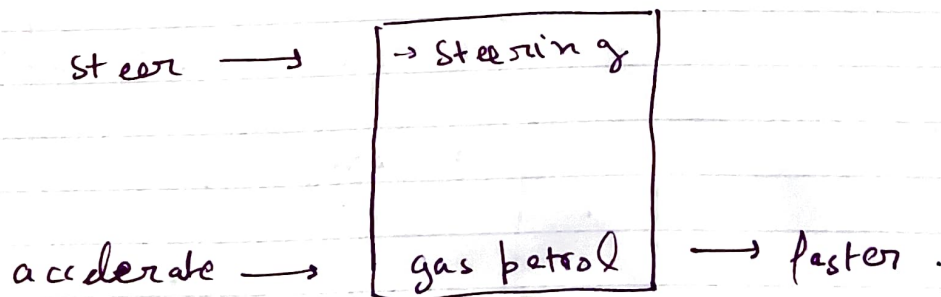 steer → → steering
accderate → gas patrol → faster.